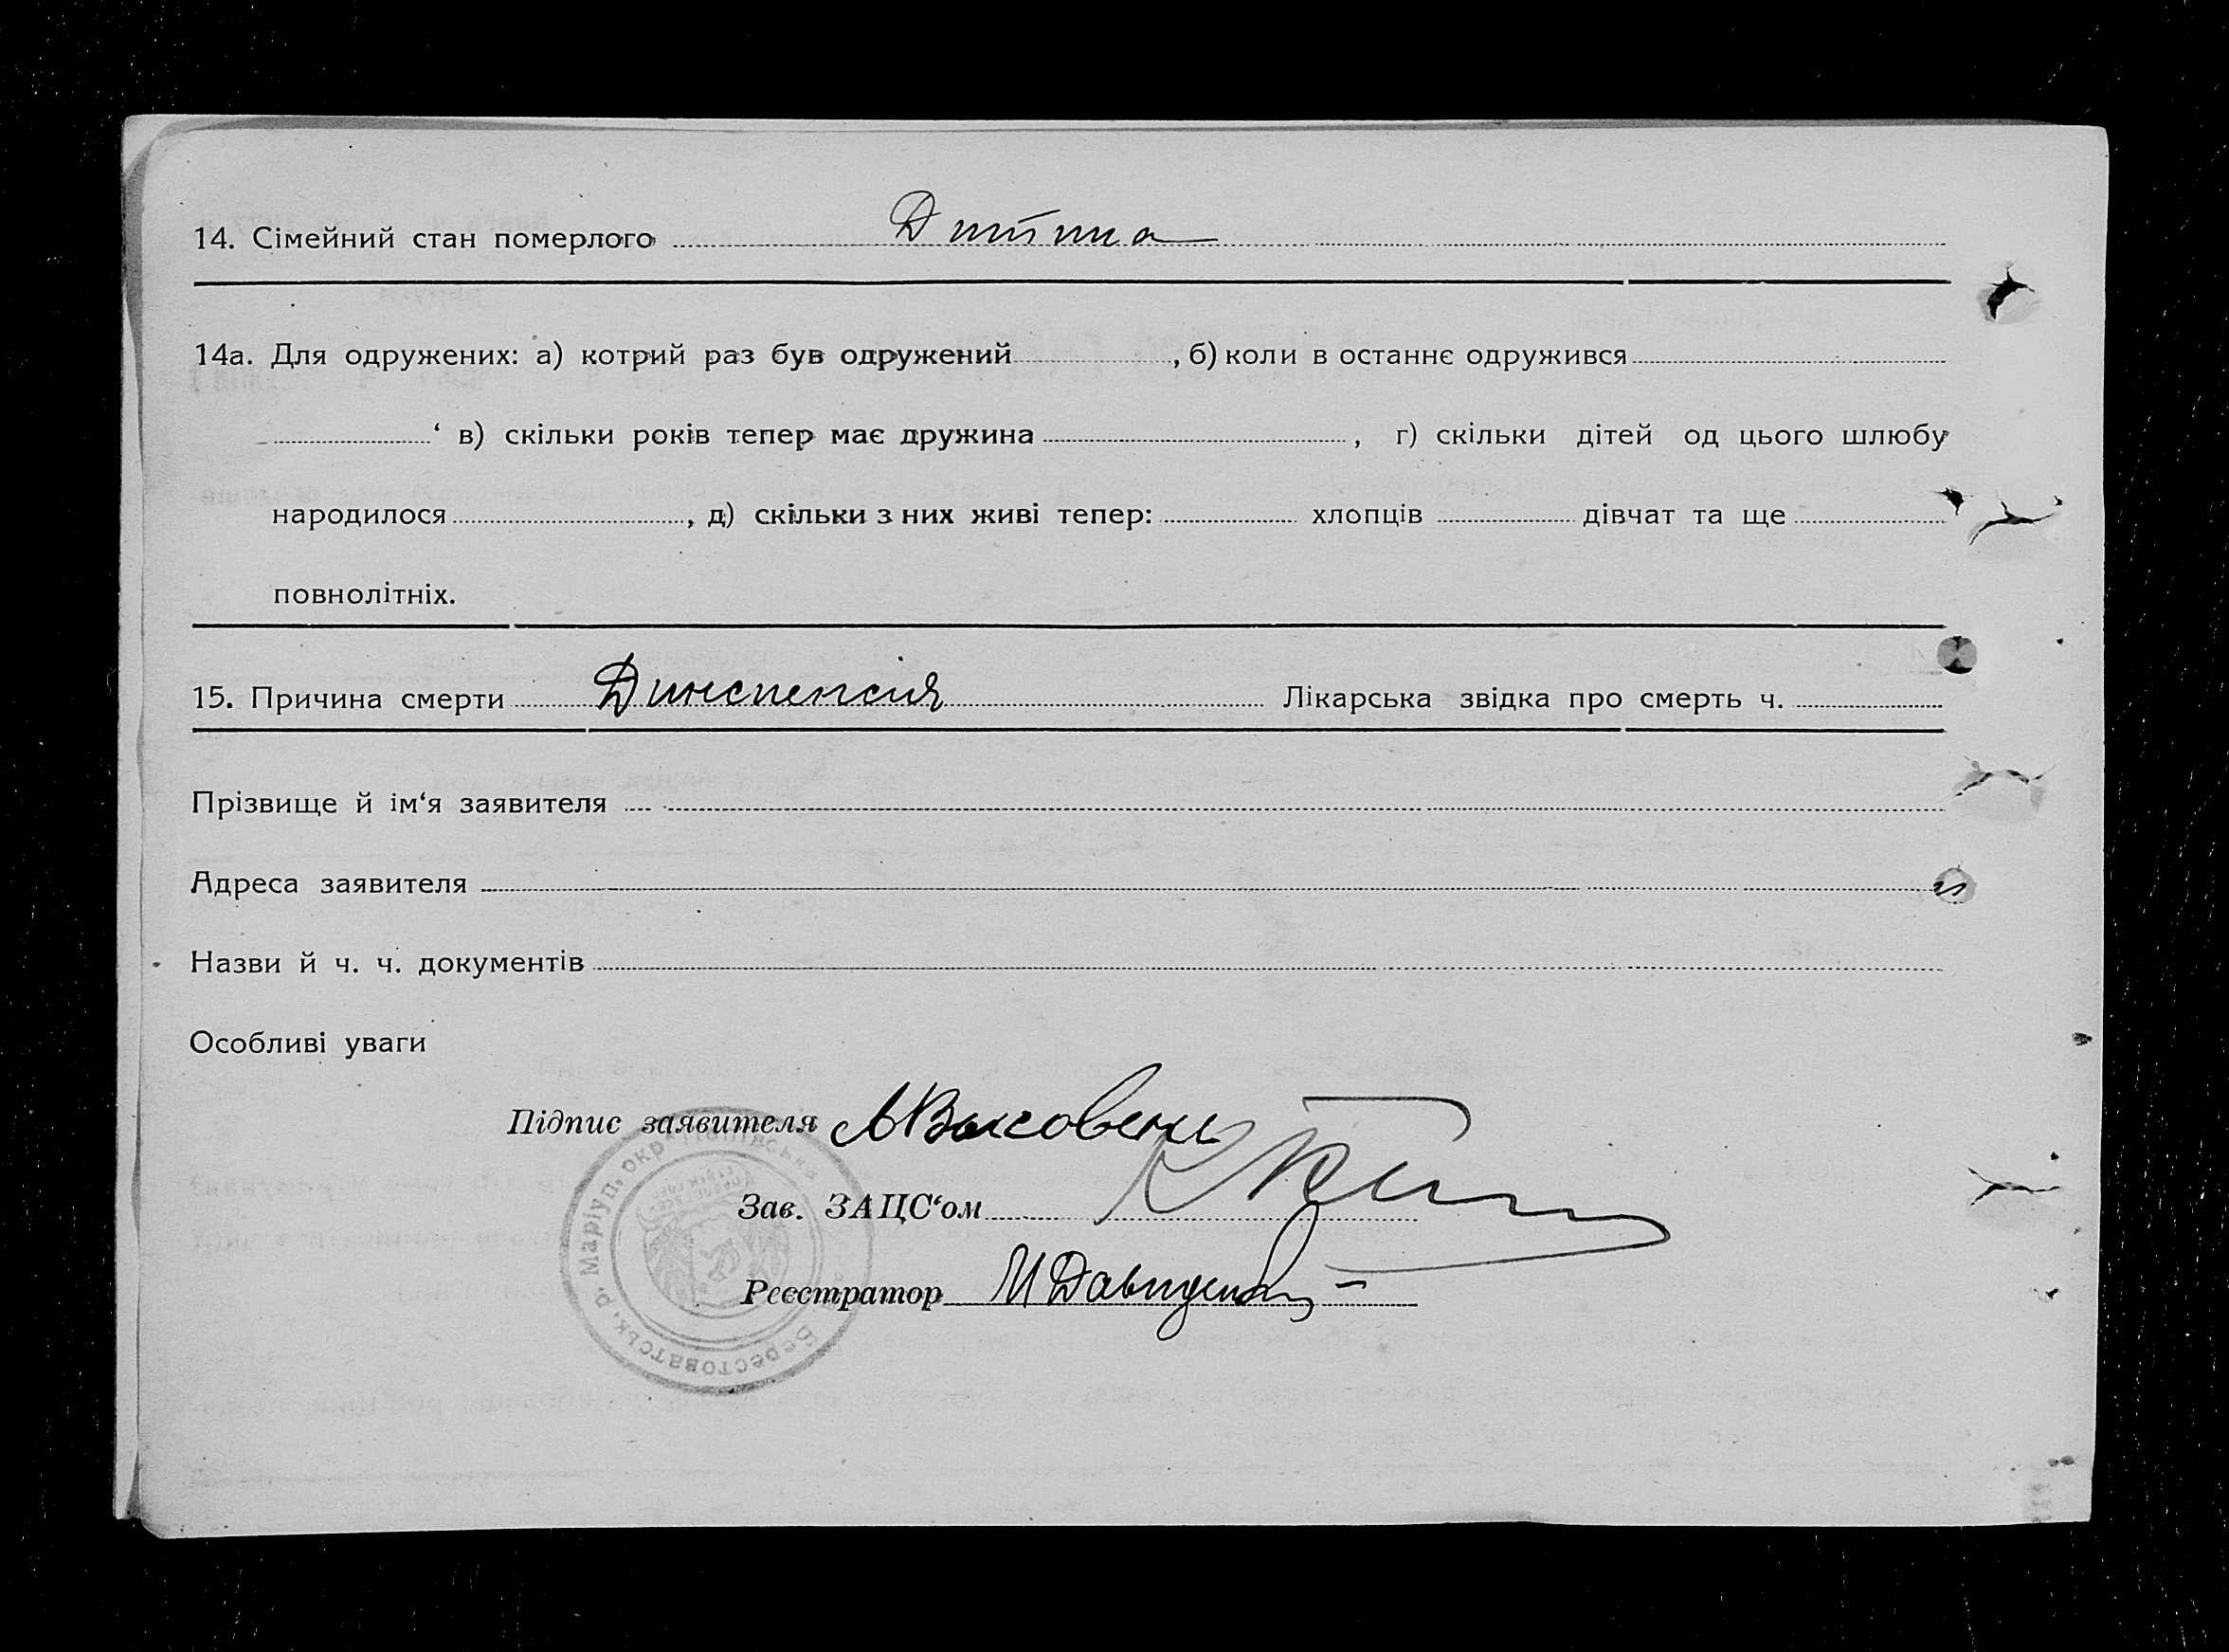 14. Сімейний стан померлого Дитина
14а. Для одружених: а) котрий раз був одружений , б) коли в останнє одружився
‘ в) скільки років тепер має дружина , г) скільки дітей од цього шлюбу
народилося , д) скільки з них живі тепер: хлопців дівчат та ще
повнолітніх.
15. Причина смерти Динспенсія Лікарська звідка про смерть ч.
Прізвище й ім‘я заявителя
Адреса заявителя
Назви й ч. ч. документів
Особливі уваги
Підпис заявителя
Зав. ЗАЦС‘ом
Реєстратор
Берестоватськ. р. Маріуп. окр.